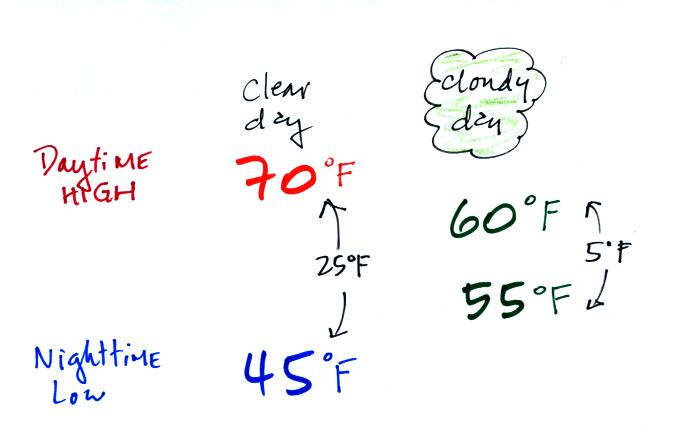 Clear
day
cloudy
day
Daytime
HIGH
70°F
60°F
5°F
25°F
55°F
Nighttime
Low
45°F